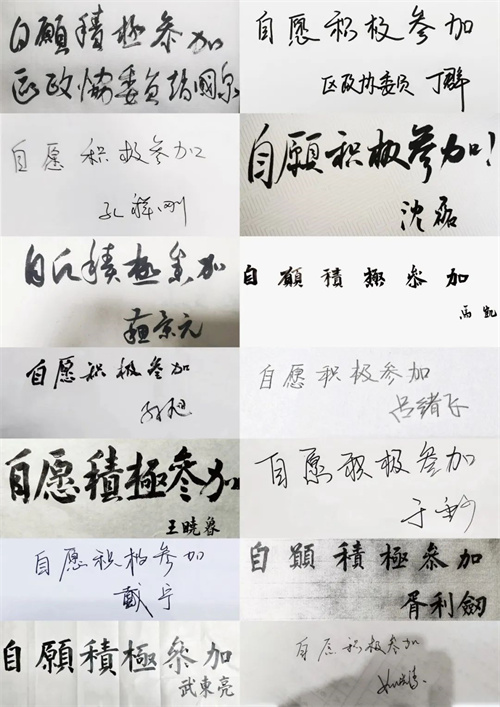 自願積極參加
区政協委員 國泉
自愿积极参加
区政协委员 丁群
自愿积极参加
孔祥刚
自願积极參加!
沈磊
自願積極參加
蘇京元
自願積極參加
馮凱
自愿积极参加
自愿积极参加
吕绪飞
自愿積極參加
王曉蓉
自愿积极参加
于
自愿积极参加
戴宁
自願積極參加
胥利劒
自願積極參加
武東亮
自愿积极参加